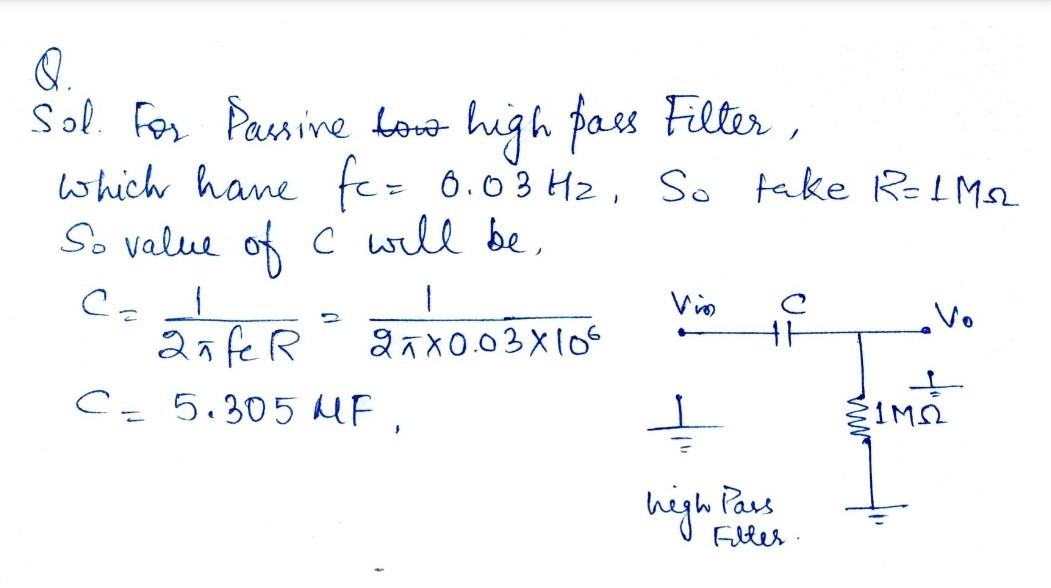 Q.
Sol. For Passive low high pass Filter,
which have fc = 0.03 Hz, So take R=1MΩ
So value of C will be,
C = 1/2πfcR = 1/2π×0.03×10⁶
C = 5.305 μF,
Vin C Vo
1MΩ
high Pass
Filter.